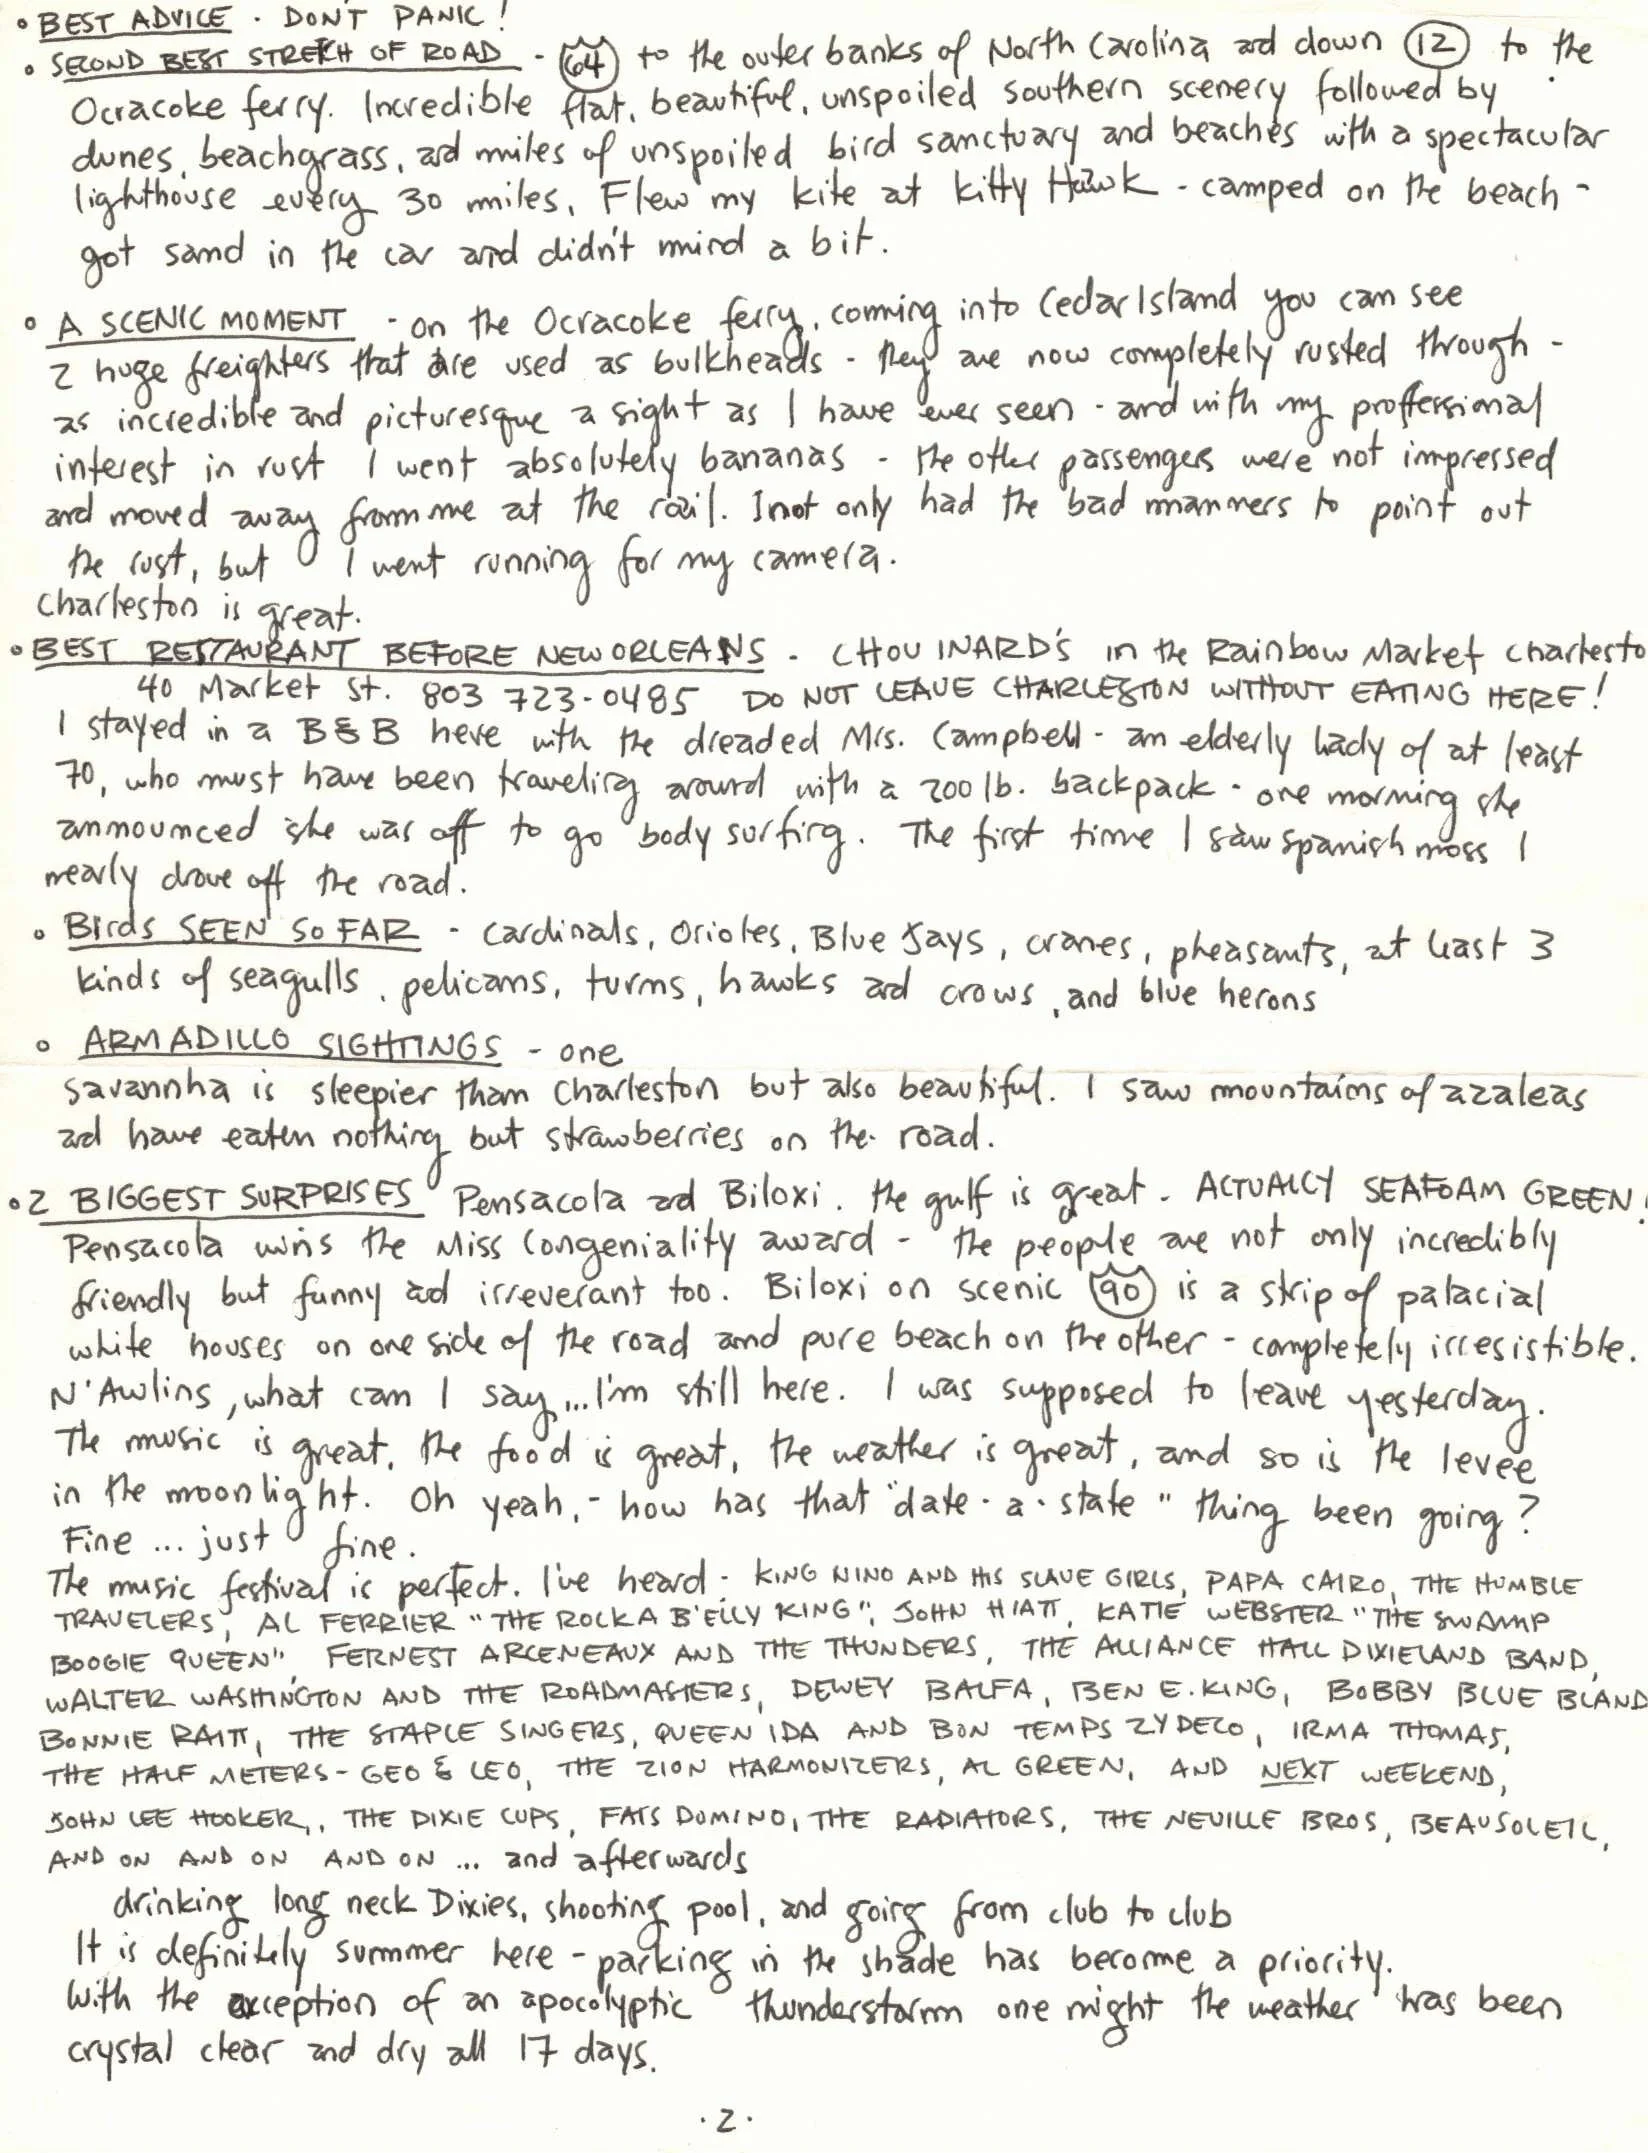 • BEST ADVICE · DON'T PANIC!
• SECOND BEST STRETCH OF ROAD - 64 to the outer banks of North Carolina and down 12 to the
Ocracoke ferry. Incredible flat, beautiful, unspoiled southern scenery followed by
dunes, beachgrass, and miles of unspoiled bird sanctuary and beaches with a spectacular
lighthouse every 30 miles. Flew my kite at Kitty Hawk - camped on the beach -
got sand in the car and didn't mind a bit.
• A SCENIC MOMENT - on the Ocracoke ferry, coming into Cedar Island you can see
2 huge freighters that are used as bulkheads - they are now completely rusted through -
as incredible and picturesque a sight as I have ever seen - and with my proffersional
interest in rust I went absolutely bananas - the other passengers were not impressed
and moved away from me at the rail. I not only had the bad manners to point out
the rust, but I went running for my camera.
Charleston is great.
• BEST RESTAURANT BEFORE NEW ORLEANS - CHOUINARD'S in the Rainbow Market Charlesto
40 Market St. 803 723-0485 DO NOT LEAVE CHARLESTON WITHOUT EATING HERE!
I stayed in a B&B here with the dreaded Mrs. Campbell - an elderly lady of at least
70, who must have been traveling around with a 200 lb. backpack - one morning she
announced she was off to go body surfing. The first time I saw spanish moss I
nearly drove off the road.
• Birds SEEN SO FAR - cardinals, Orioles, Blue Jays, cranes, pheasants, at least 3
kinds of seagulls, pelicans, turns, hawks and crows, and blue herons
• ARMADILLO SIGHTINGS - one
Savannha is sleepier than Charleston but also beautiful. I saw mountains of azaleas
and have eaten nothing but strawberries on the road.
• 2 BIGGEST SURPRISES Pensacola and Biloxi. The gulf is great. ACTUALLY SEAFOAM GREEN!
Pensacola wins the Miss Congeniality award - the people are not only incredibly
friendly but funny and irreverant too. Biloxi on scenic 90 is a strip of palacial
white houses on one side of the road and pure beach on the other - completely irresistible.
N'Awlins, what can I say... I'm still here. I was supposed to leave yesterday.
The music is great, the food is great, the weather is great, and so is the levee
in the moonlight. Oh yeah, - how has that "date-a-state" thing been going?
Fine ... just fine.
The music festival is perfect. I've heard - KING NINO AND HIS SLAVE GIRLS, PAPA CAIRO, THE HUMBLE
TRAVELERS, AL FERRIER "THE ROCKA B'EILY KING", JOHN HIATT, KATIE WEBSTER "THE SWAMP
BOOGIE QUEEN", FERNEST ARCENEAUX AND THE THUNDERS, THE ALLIANCE HALL DIXIELAND BAND,
WALTER WASHINGTON AND THE ROADMASTERS, DEWEY BALFA, BEN E. KING, BOBBY BLUE BLAND
BONNIE RAITT, THE STAPLE SINGERS, QUEEN IDA AND BON TEMPS ZYDECO, IRMA THOMAS,
THE HALF METERS - GEO & LEO, THE ZION HARMONIZERS, AL GREEN, AND NEXT WEEKEND,
JOHN LEE HOOKER, THE DIXIE CUPS, FATS DOMINO, THE RADIATORS, THE NEVILLE BROS, BEAUSOLEIL,
AND ON AND ON AND ON ... and afterwards
drinking long neck Dixies, shooting pool, and going from club to club
It is definitely summer here - parking in the shade has become a priority.
With the exception of an apocolyptic thunderstorm one might the weather has been
crystal clear and dry all 17 days.
· 2 ·